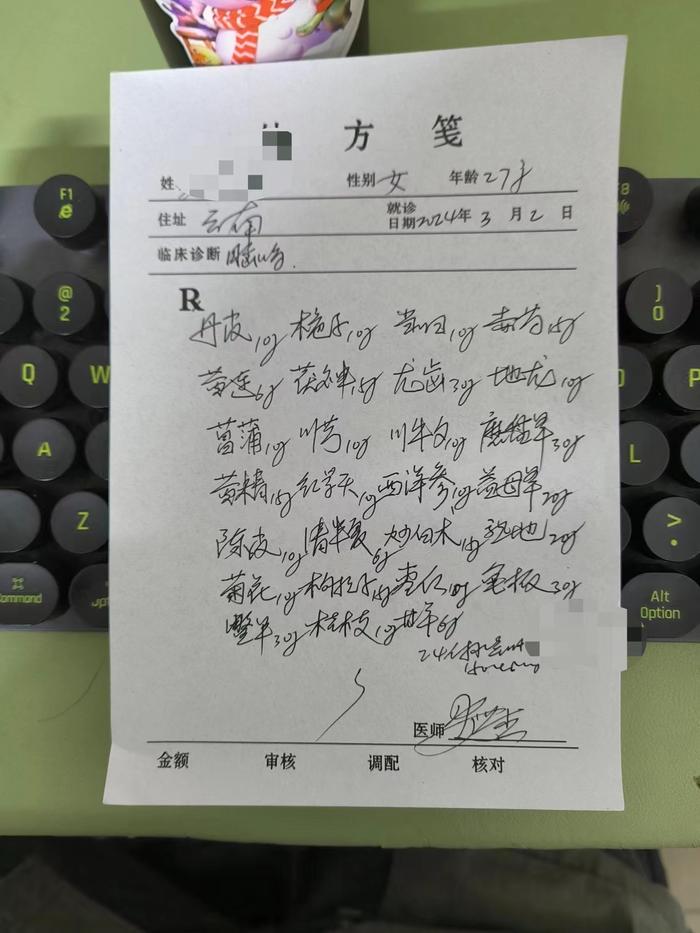 方 笺
姓 性别 女 年龄 27岁
住址 云南 就诊日期 2024年 3 月 2 日
临床诊断
R
丹皮10g 栀子10g 当归10g 赤芍15g
黄连6g 茯神15g 龙齿30g 地龙10g
菖蒲10g 川芎10g 川牛夕10g 鹿衔草30g
黄精15g 红景天10g 西洋参10g 益母草20g
陈皮10g 清半夏6g 炒白术10g 熟地20g
菊花10g 枸杞子15g 枣仁10g 龟板30g
桂枝10g 甘草6g
医师
金额 审核 调配 核对
F1
@
2
Q
W
A
Z
Command
F8
)
0
P
L
>
.
Alt
Option